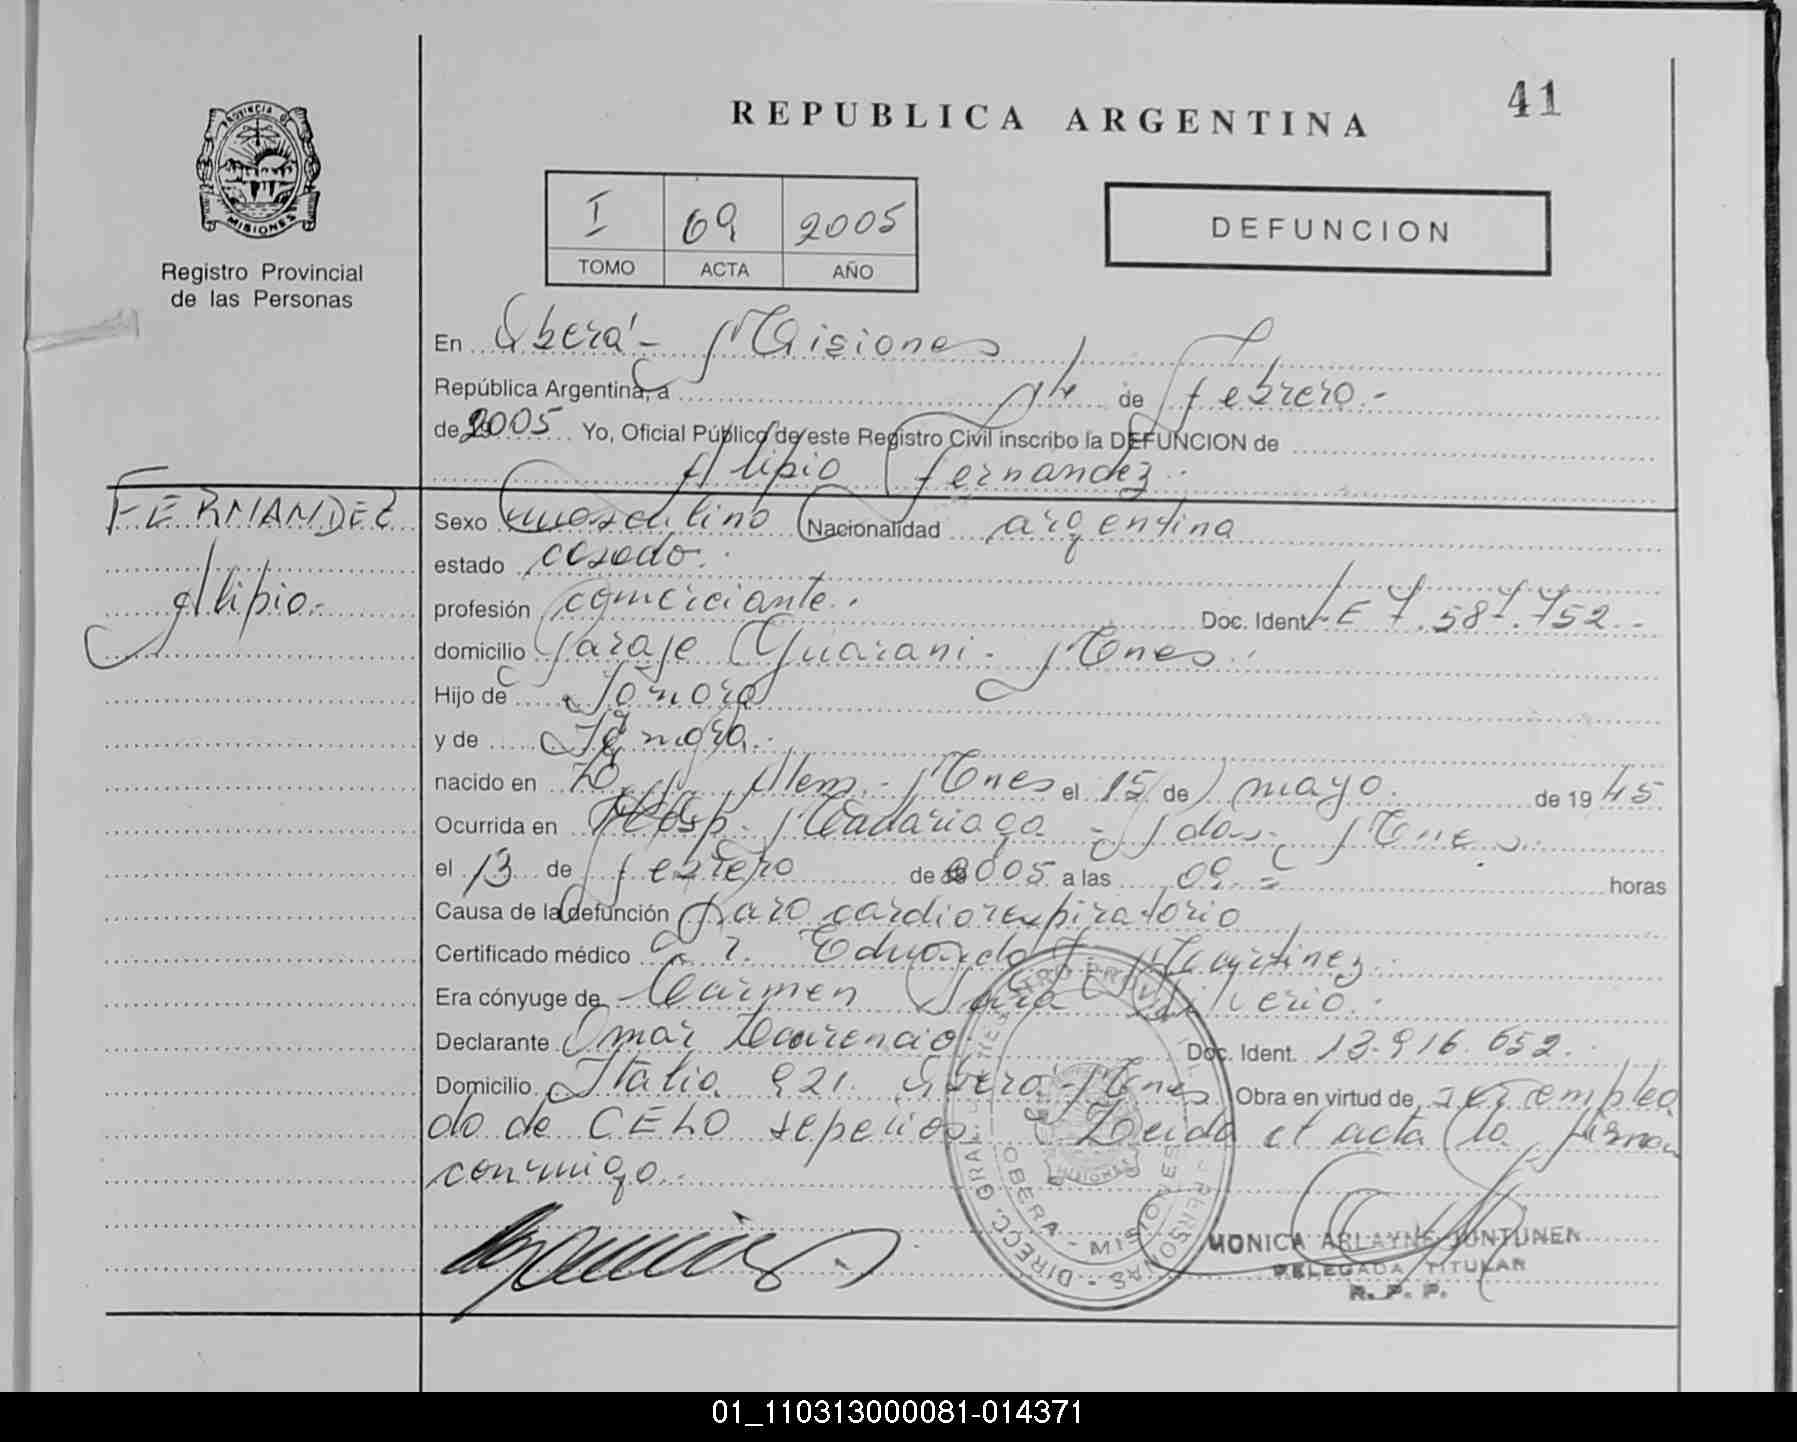 41
REPUBLICA ARGENTINA
PROVINCIA DE
MISIONES
Registro Provincial
de las Personas
I 69 2005
TOMO ACTA AÑO
DEFUNCION
En Oberá - Misiones
República Argentina, a 14 de febrero.-
de 2005 Yo, Oficial Público de este Registro Civil inscribo la DEFUNCION de
Alipio Fernandez.
FERNANDEZ
Alipio.-
Sexo masculino Nacionalidad argentina
estado casado.
profesión comerciante. Doc. Ident. LE 7.587.752.-
domicilio Paraje Guarani - Mnes.
Hijo de Ignora
y de Ignora.
nacido en L. N. Alem - Mnes el 15 de mayo. de 19 45
Ocurrida en Hosp. Madariaga - Pdas - Mnes.
el 13 de febrero de 2005 a las 09.= horas
Causa de la defunción Paro cardiorespiratorio
Certificado médico Dr. Eduardo Martinez.
Era cónyuge de Carmen Silverio.
Declarante Omar Doc. Ident. 13.916.652.
Domicilio Italia 921. Oberá - Mnes Obra en virtud de ser emplea
do de CELO sepelios. Leida el acta la firma
conmigo.
DIRECC. GRAL. REGISTRO PROVINCIAL PERSONAS
OBERA - MISIONES
MONICA ARLAYNE JUNTUNEN
DELEGADA TITULAR
R. P. P.
01_110313000081-014371